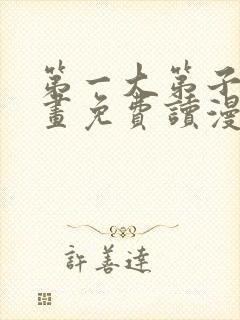 第一大弟子
畫免費讀漫
許善達